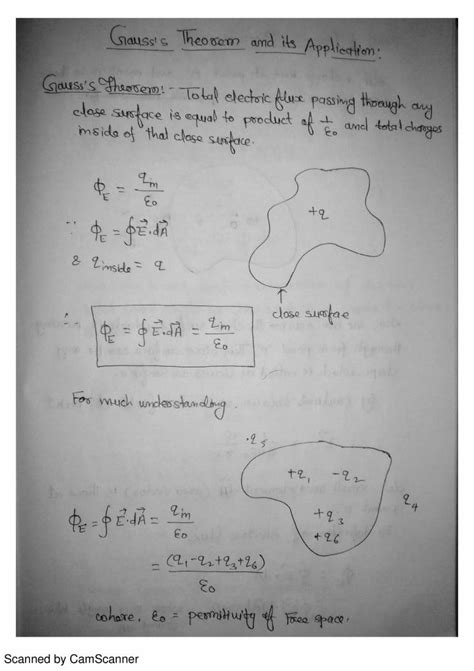 Gauss's Theorem and its Application:
Gauss's Theorem:- Total electric flux passing through any
close surface is equal to product of 1/ε₀ and total charges
inside of that close surface.
ϕ_E = q_in/ε₀
∵ ϕ_E = ∮E⃗.dA⃗
& q_inside = q
+q
close surface
∴ ϕ_E = ∮E⃗.dA⃗ = q_in/ε₀
For much understanding.
.q₅
+q₁ -q₂
q₄
+q₃
+q₆
ϕ_E = ∮E⃗.dA⃗ = q_in/ε₀
= (q₁-q₂+q₃+q₆)/ε₀
where, ε₀ = permittivity of Free space.
Scanned by CamScanner